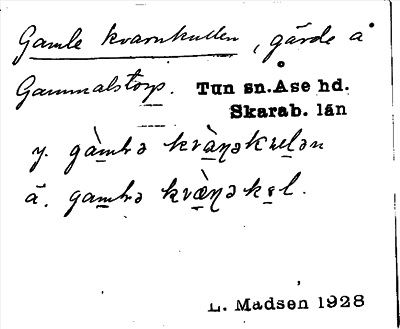 Gamle kvarnkullen, gärde å
Gammalstorp. Tun sn. Åse hd.
Skarab. län
y. gàmlə kvàɳəkulən
ä. gamlə kvæ̀ɳəkɛl.
L. Madsen 1928